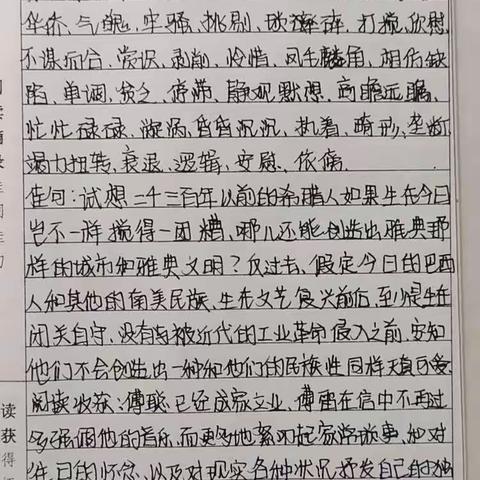 华侨、气魄、牢骚、挑剔、球、打搅、欣慰、
不谋而合、赏识、剥削、怜惜、凤毛麟角、相伤缺
陷、单调、贫乏、停滞、静观默想、高瞻远瞩、
忙忙碌碌、漩涡、昏昏沉沉、执着、畸形、垄断、
竭力扭转、衰退、逻辑、安慰、依痛.
佳句:试想二千三百年以前的希腊人如果生在今日
岂不一样搅得一团糟,哪儿还能创造出雅典那
样的城市和雅典文明?反过去,假定今日的巴西
人和其他的南美民族,生在文艺复兴前后,至少是生在
闭关自守,没有被近代的工业革命侵入之前,安知
他们不会创出一种和他们的民族性同样天真可爱
阅读收获:傅聪已经成家立业,傅雷在信中不再过
多强调他的音乐,而更多地絮叨起家常琐事,和对
往日的怀念,以及对现实各种状况抒发自己的独
读
获
得